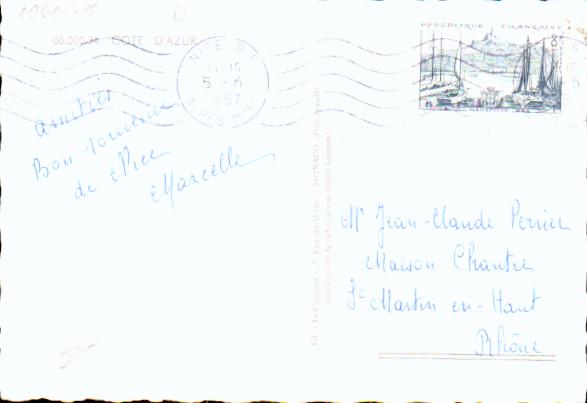 06.000.34 COTE D'AZUR
NICE R.P.
5-6
1957
ALPES Mmes
REPUBLIQUE FRANÇAISE
8F
amitiés
Bon souvenir
de Nice
Marcelle
Mr Jean-Claude Perrier
Maison Chantre
St Martin en-Haut
Rhône
Ed. « La Cigogne » - MONACO
exclusivité de fabrication André Leconte